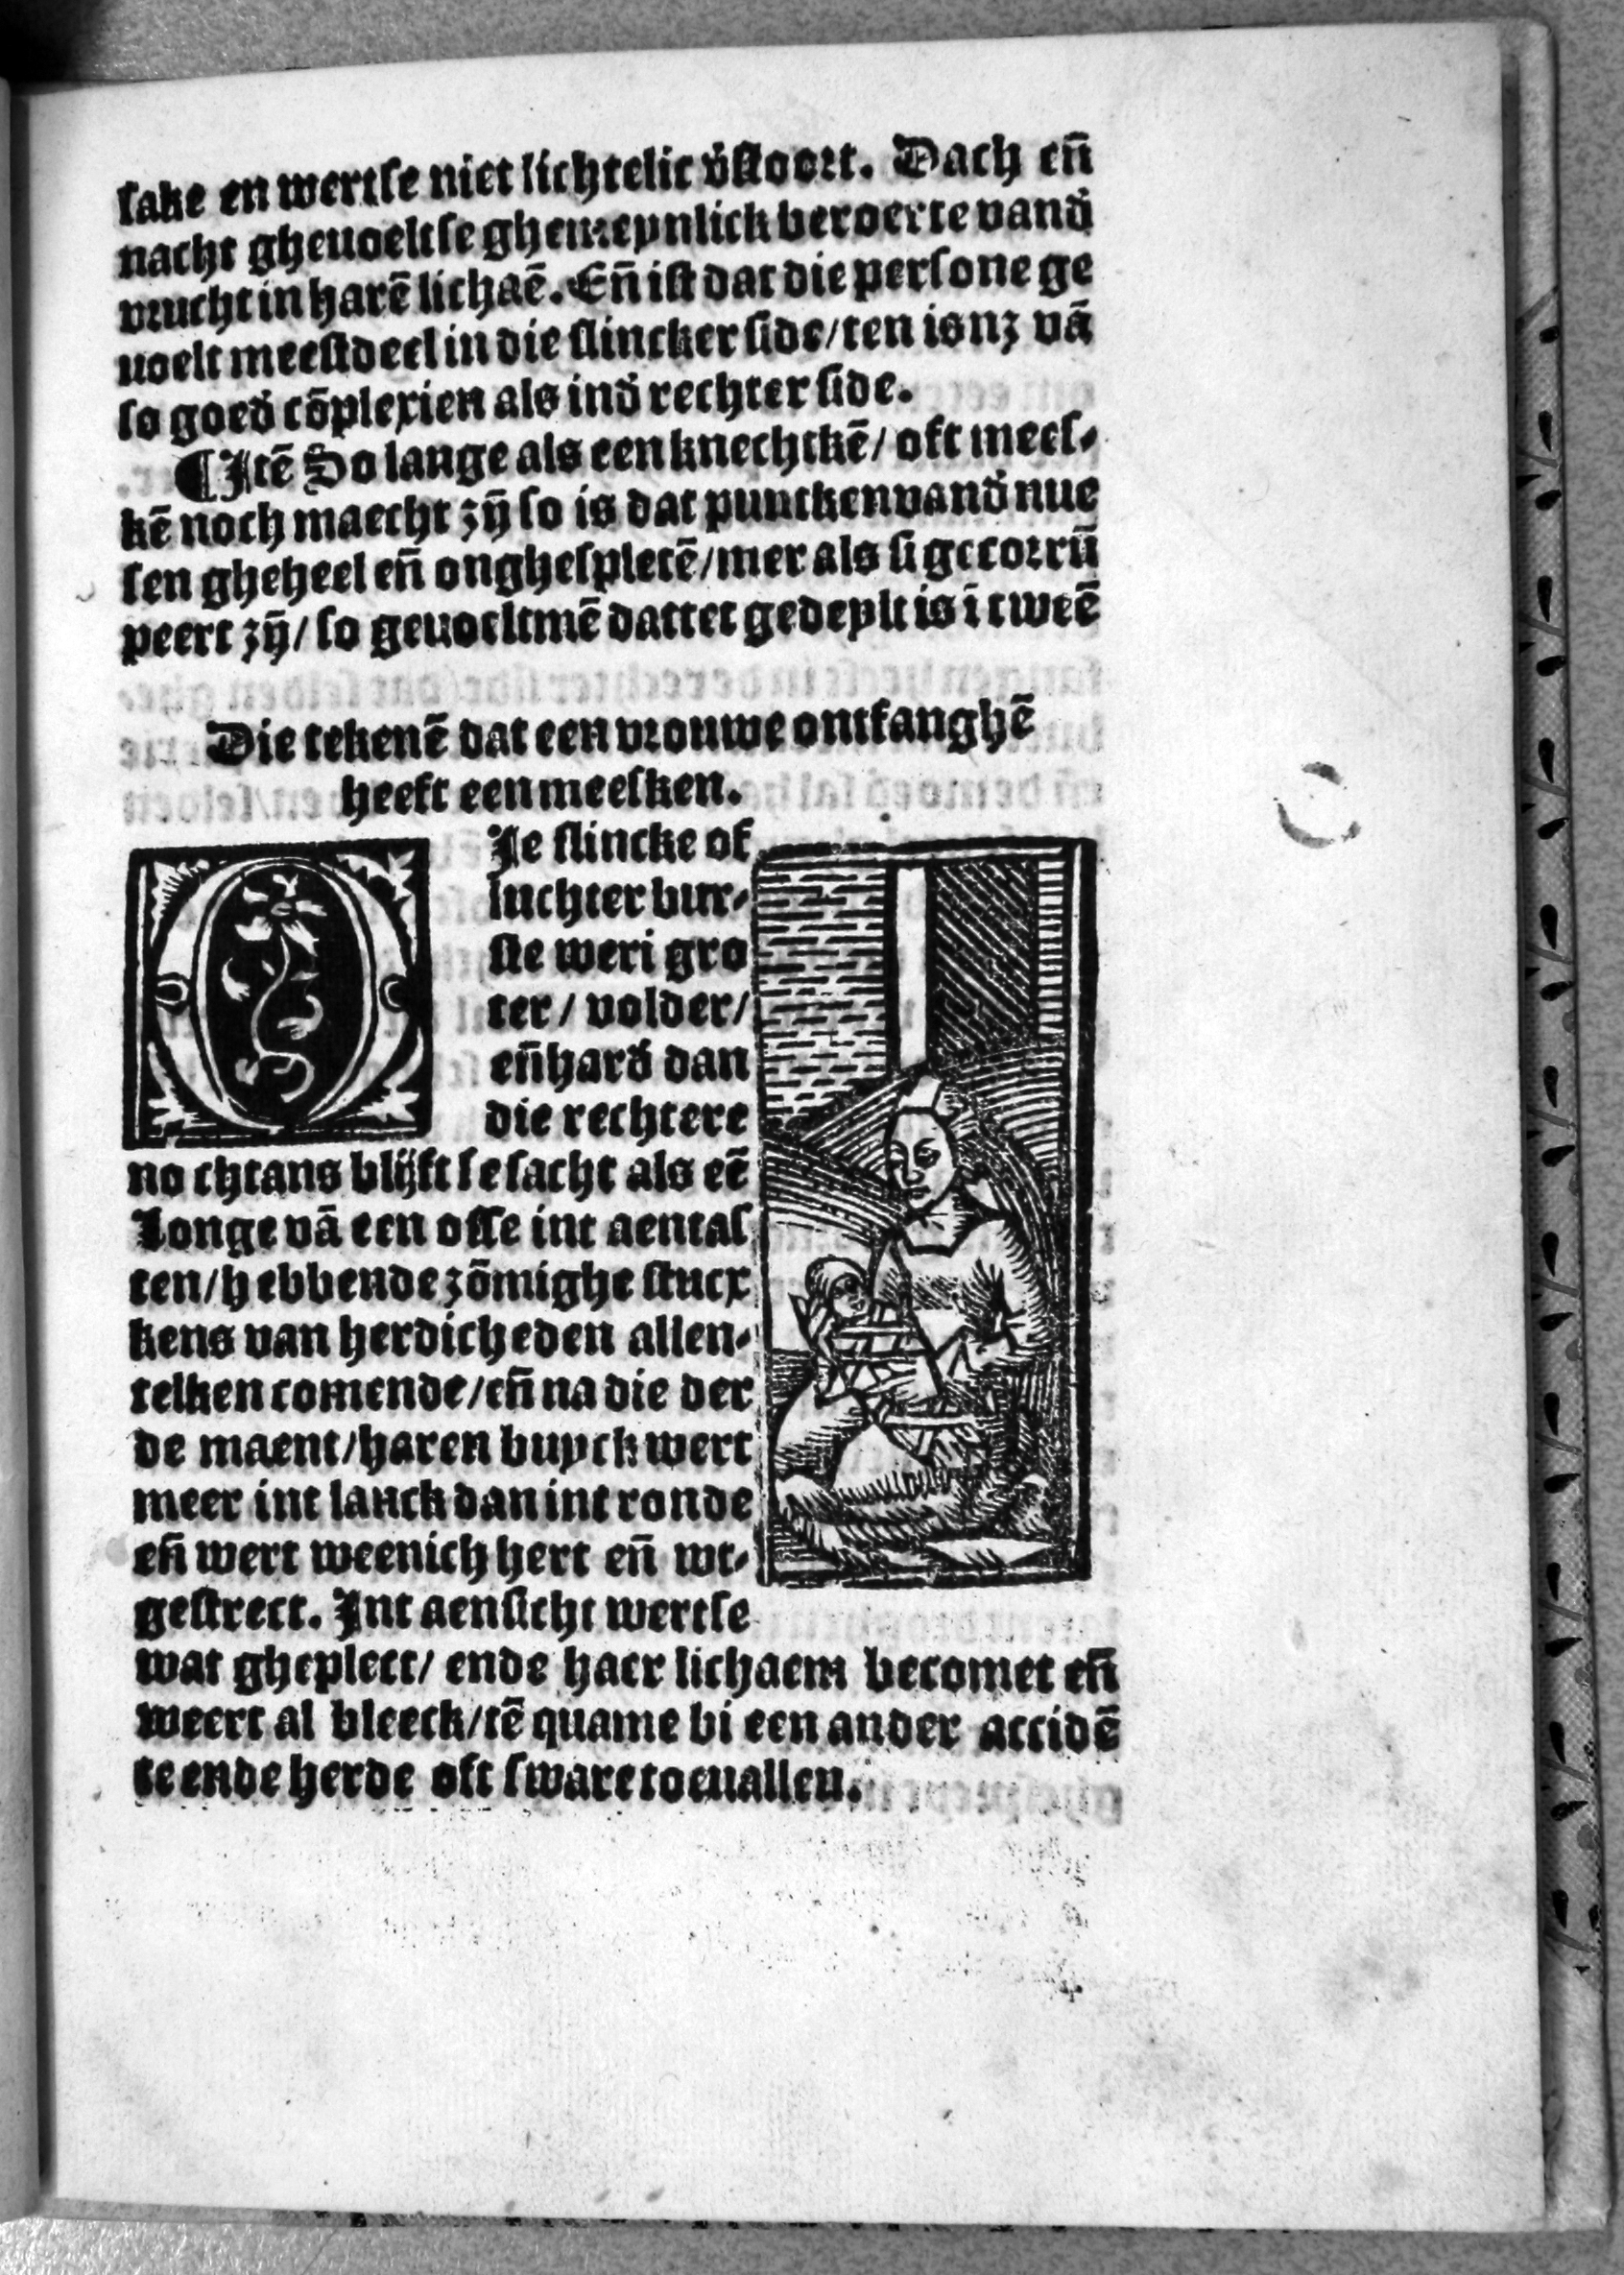 sake en wertse niet lichtelic v̄stoort. Dach en̄
nacht gheuoeltse ghemeynlick beroerte vand̄
vrucht in harē lichaē. En̄ ist dat die persone ge
uoelt meestdeel in die slincker side/ten is nz vā
so goed̄ cōplexien als ind̄ rechter side.
¶Itē So lange als een knechtkē/ oft mees⸗
kē noch maecht zȳ so is dat punctken vand̄ nue
sen gheheel en̄ onghespletē/mer als si gecorrū
peert zȳ/ so geuoeltmē dattet gedeylt is ī tweē
Die tekenē dat een vrouwe ontfanghē
heeft een meesken.
DIe slincke of
luchter bur⸗
ste wert gro
ter/ volder/
en̄ hard̄ dan
die rechtere
nochtans blijft se sacht als eē
Longe vā een osse int aentas
ten/hebbende zōmighe stucx
kens van herdicheden allen⸗
telken comende/en̄ na die der
de maent/haren buyck wert
meer int lanck dan int ronde
en̄ wert weenich hert en̄ wt⸗
gestrect. Int aensicht wertse
wat gheplect/ ende haer lichaem becomet en̄
weert al bleeck/tē quame bi een ander accidē
te ende herde oft sware toeuallen.